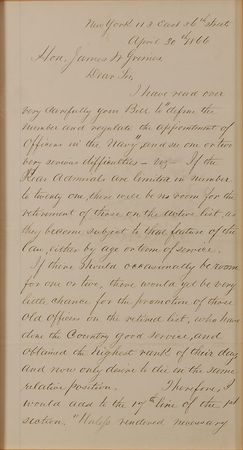 New York 113 East 36th Street
April 30th 1866
Hon. James W Grimes
Dear Sir,
I have read over
very carefully your Bill "to define the
number and regulate the appointment of
Officers in the Navy", and see one or two
very serious difficulties - viz - If the
Rear Admirals are limited in number
to twenty one, there will be no room for the
retirement of those on the active list, as
they become subject to that feature of the
law, either by age or term of service.
If there should occasionally be room
for one or two, there would yet be very
little chance for the promotion of those
Old Officers on the retired list, who have
done the Country good service, and
obtained the highest rank of their day
and now only desire to die in the same
relative position. Therefore, I
would add to the 17th line of the 1st
section. "Unless rendered necessary